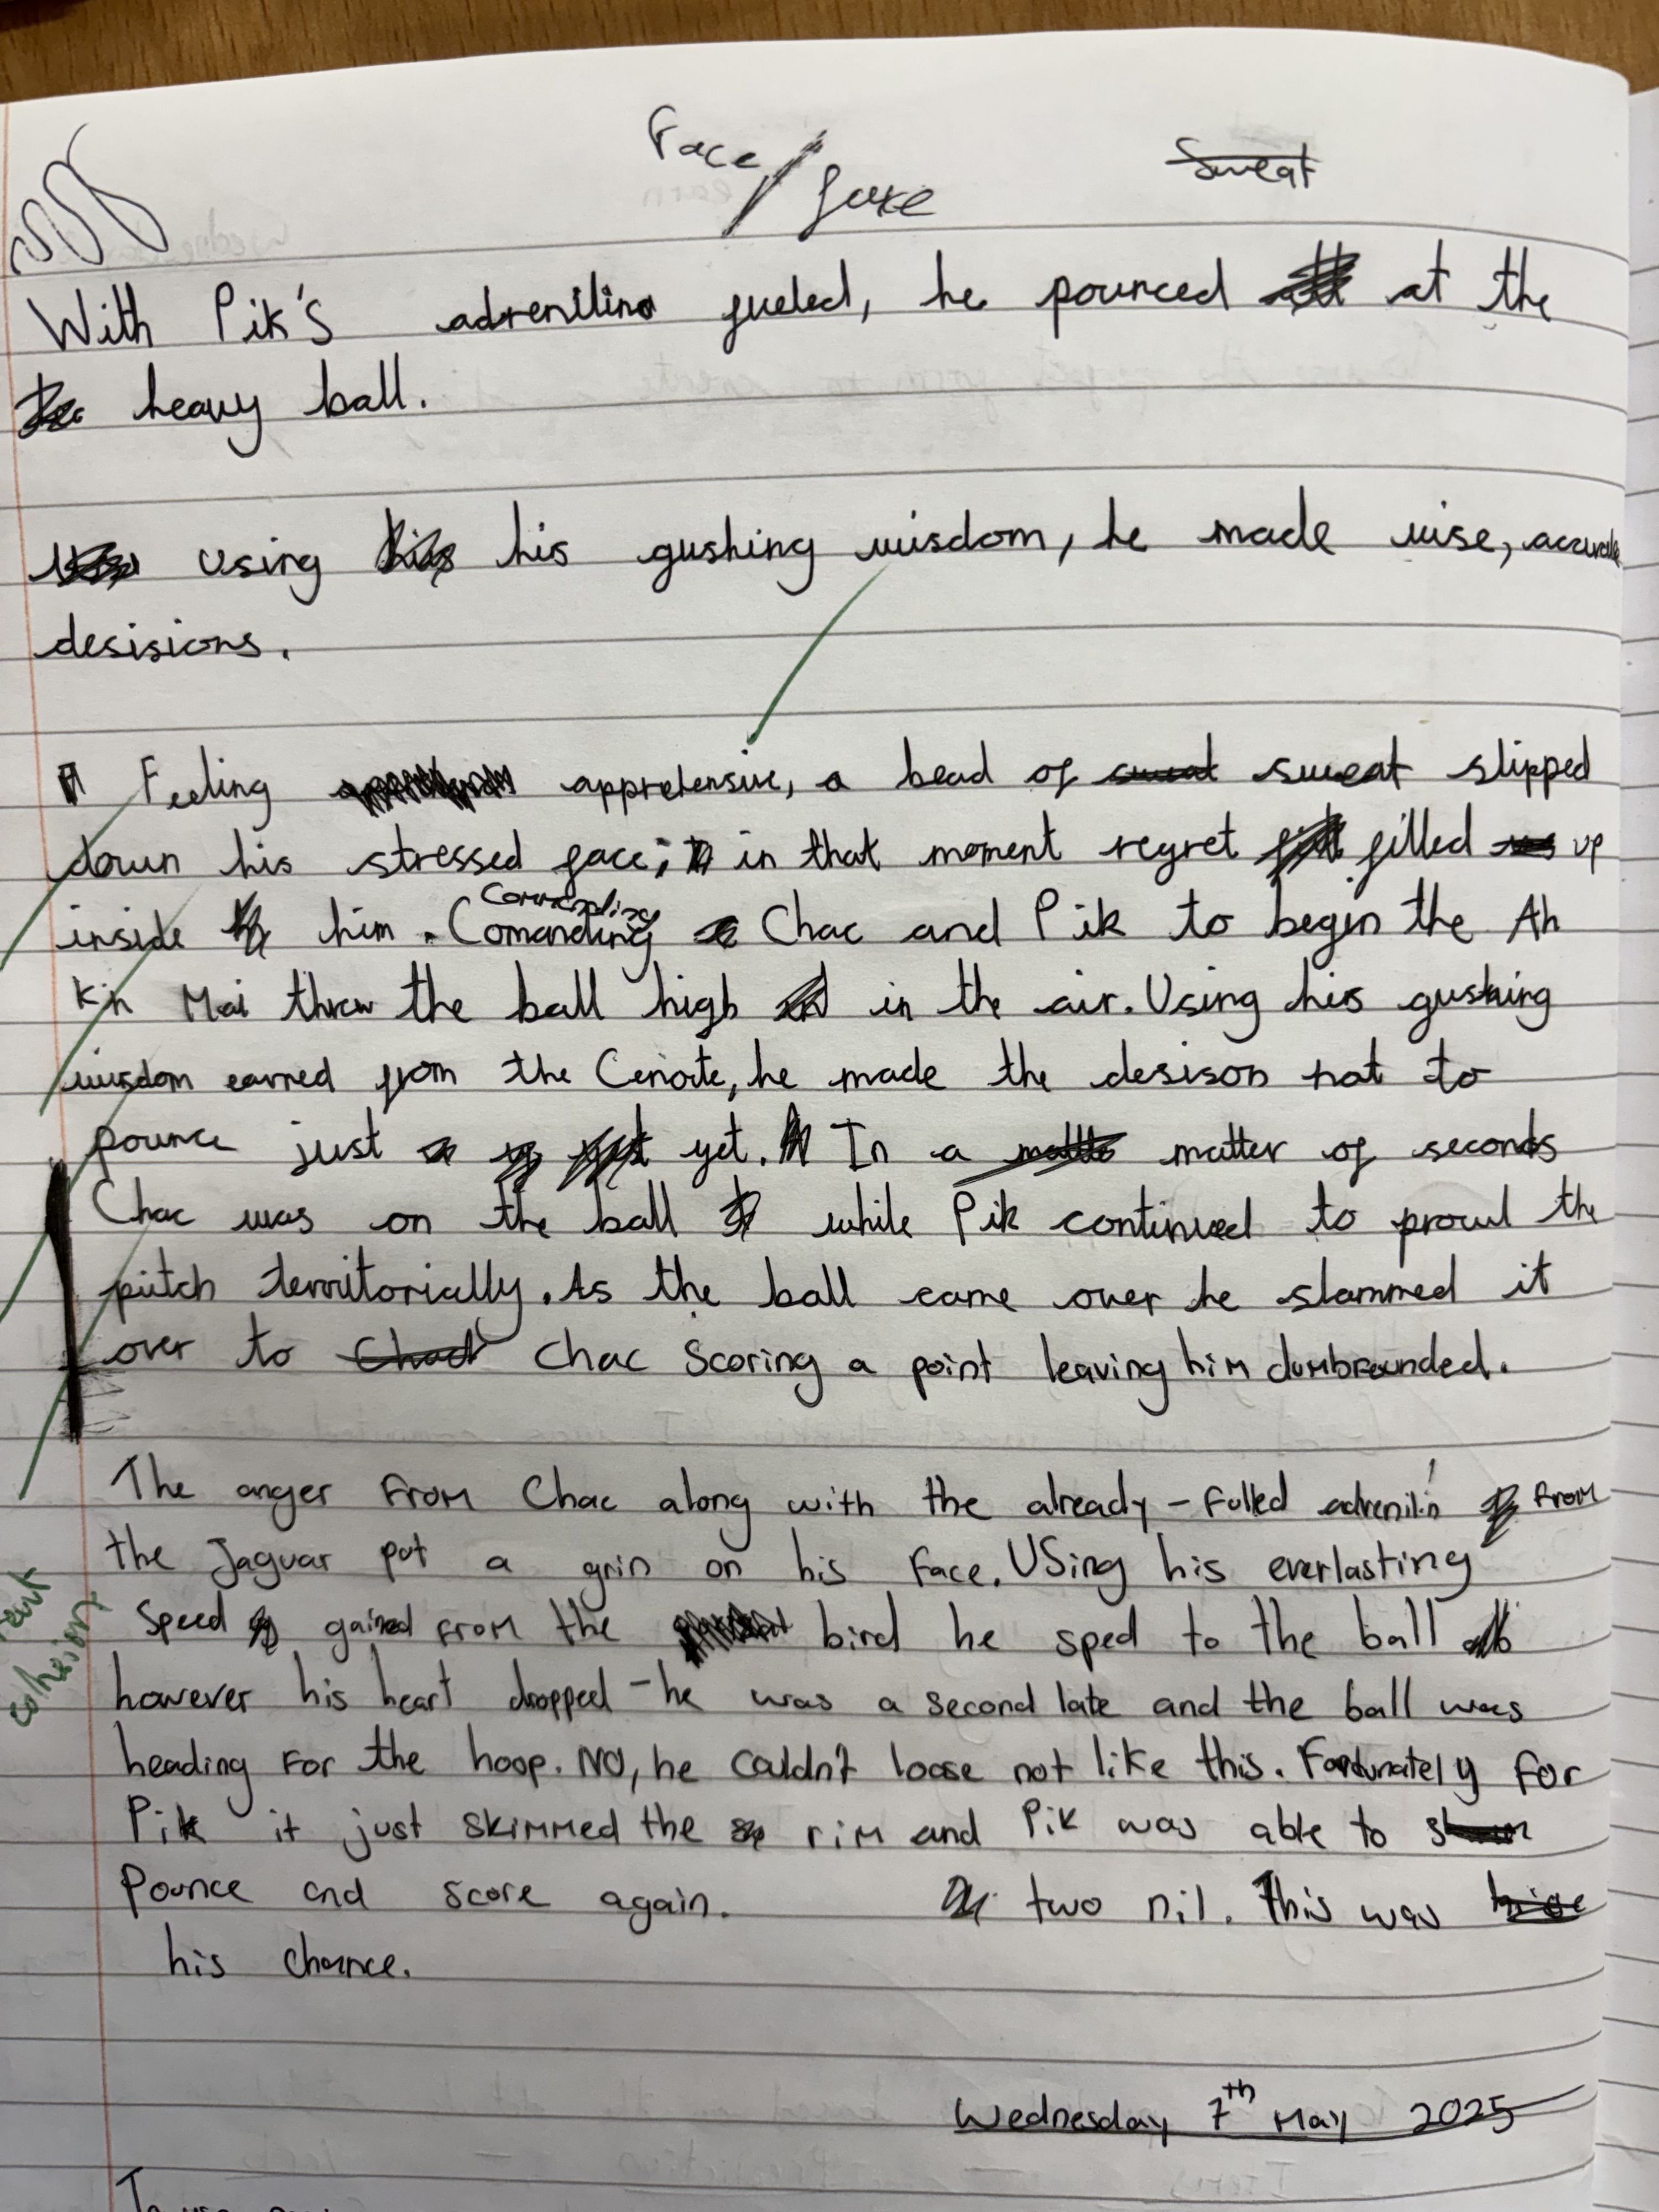 Face / fake
Sweat
With Pik's adreniline fueled, he pounced at the
heavy ball.
using his gushing wisdom, he made wise, accurate
desisions.
Feeling apprehensive, a bead of sweat sweat slipped
down his stressed face; in that moment regret filled up
inside him. Comanding Chac and Pik to begin the Ah
Kin Mai threw the ball high in the air. Using his gushing
wisdom earned from the Cenote, he made the desison not to
pounce just yet. In a matter of seconds
Chac was on the ball while Pik continued to prowl the
pitch territorially. As the ball came over he slammed it
over to Chac Chac Scoring a point leaving him dumbfounded.
The anger from Chac along with the already-fulled adrenilin from
the Jaguar put a grin on his face. Using his everlasting
speed gained from the bird he sped to the ball
however his heart dropped - he was a second late and the ball was
heading for the hoop. No, he couldn't loose not like this. Fortunately for
Pik it just skimmed the rim and Pik was able to
Pounce and score again. two nil. This was
his chance.
cohesion
Wednesday 7th May 2025